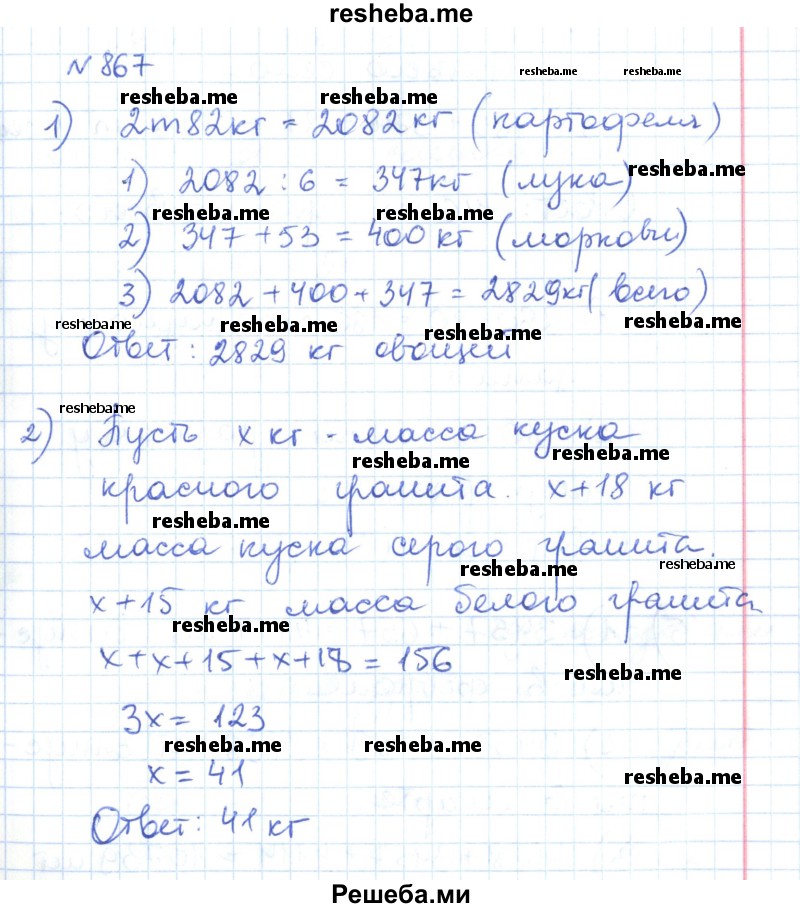 resheba.me
№ 867
resheba.me resheba.me
resheba.me resheba.me
1) 2т82кг = 2082 кг (картофеля)
resheba.me
1) 2082 : 6 = 347кг (лука)
resheba.me resheba.me
2) 347 + 53 = 400 кг (моркови)
3) 2082 + 400 + 347 = 2829кг (всего)
resheba.me resheba.me resheba.me resheba.me
Ответ: 2829 кг овощей
resheba.me
2) Пусть x кг - масса куска
resheba.me resheba.me
красного гранита. x+18 кг
resheba.me
масса куска серого гранита.
resheba.me resheba.me
x+15 кг масса белого гранита
resheba.me
x+x+15+x+18 = 156
resheba.me
3x = 123
resheba.me resheba.me
x = 41
resheba.me
Ответ: 41 кг
Решеба.ми